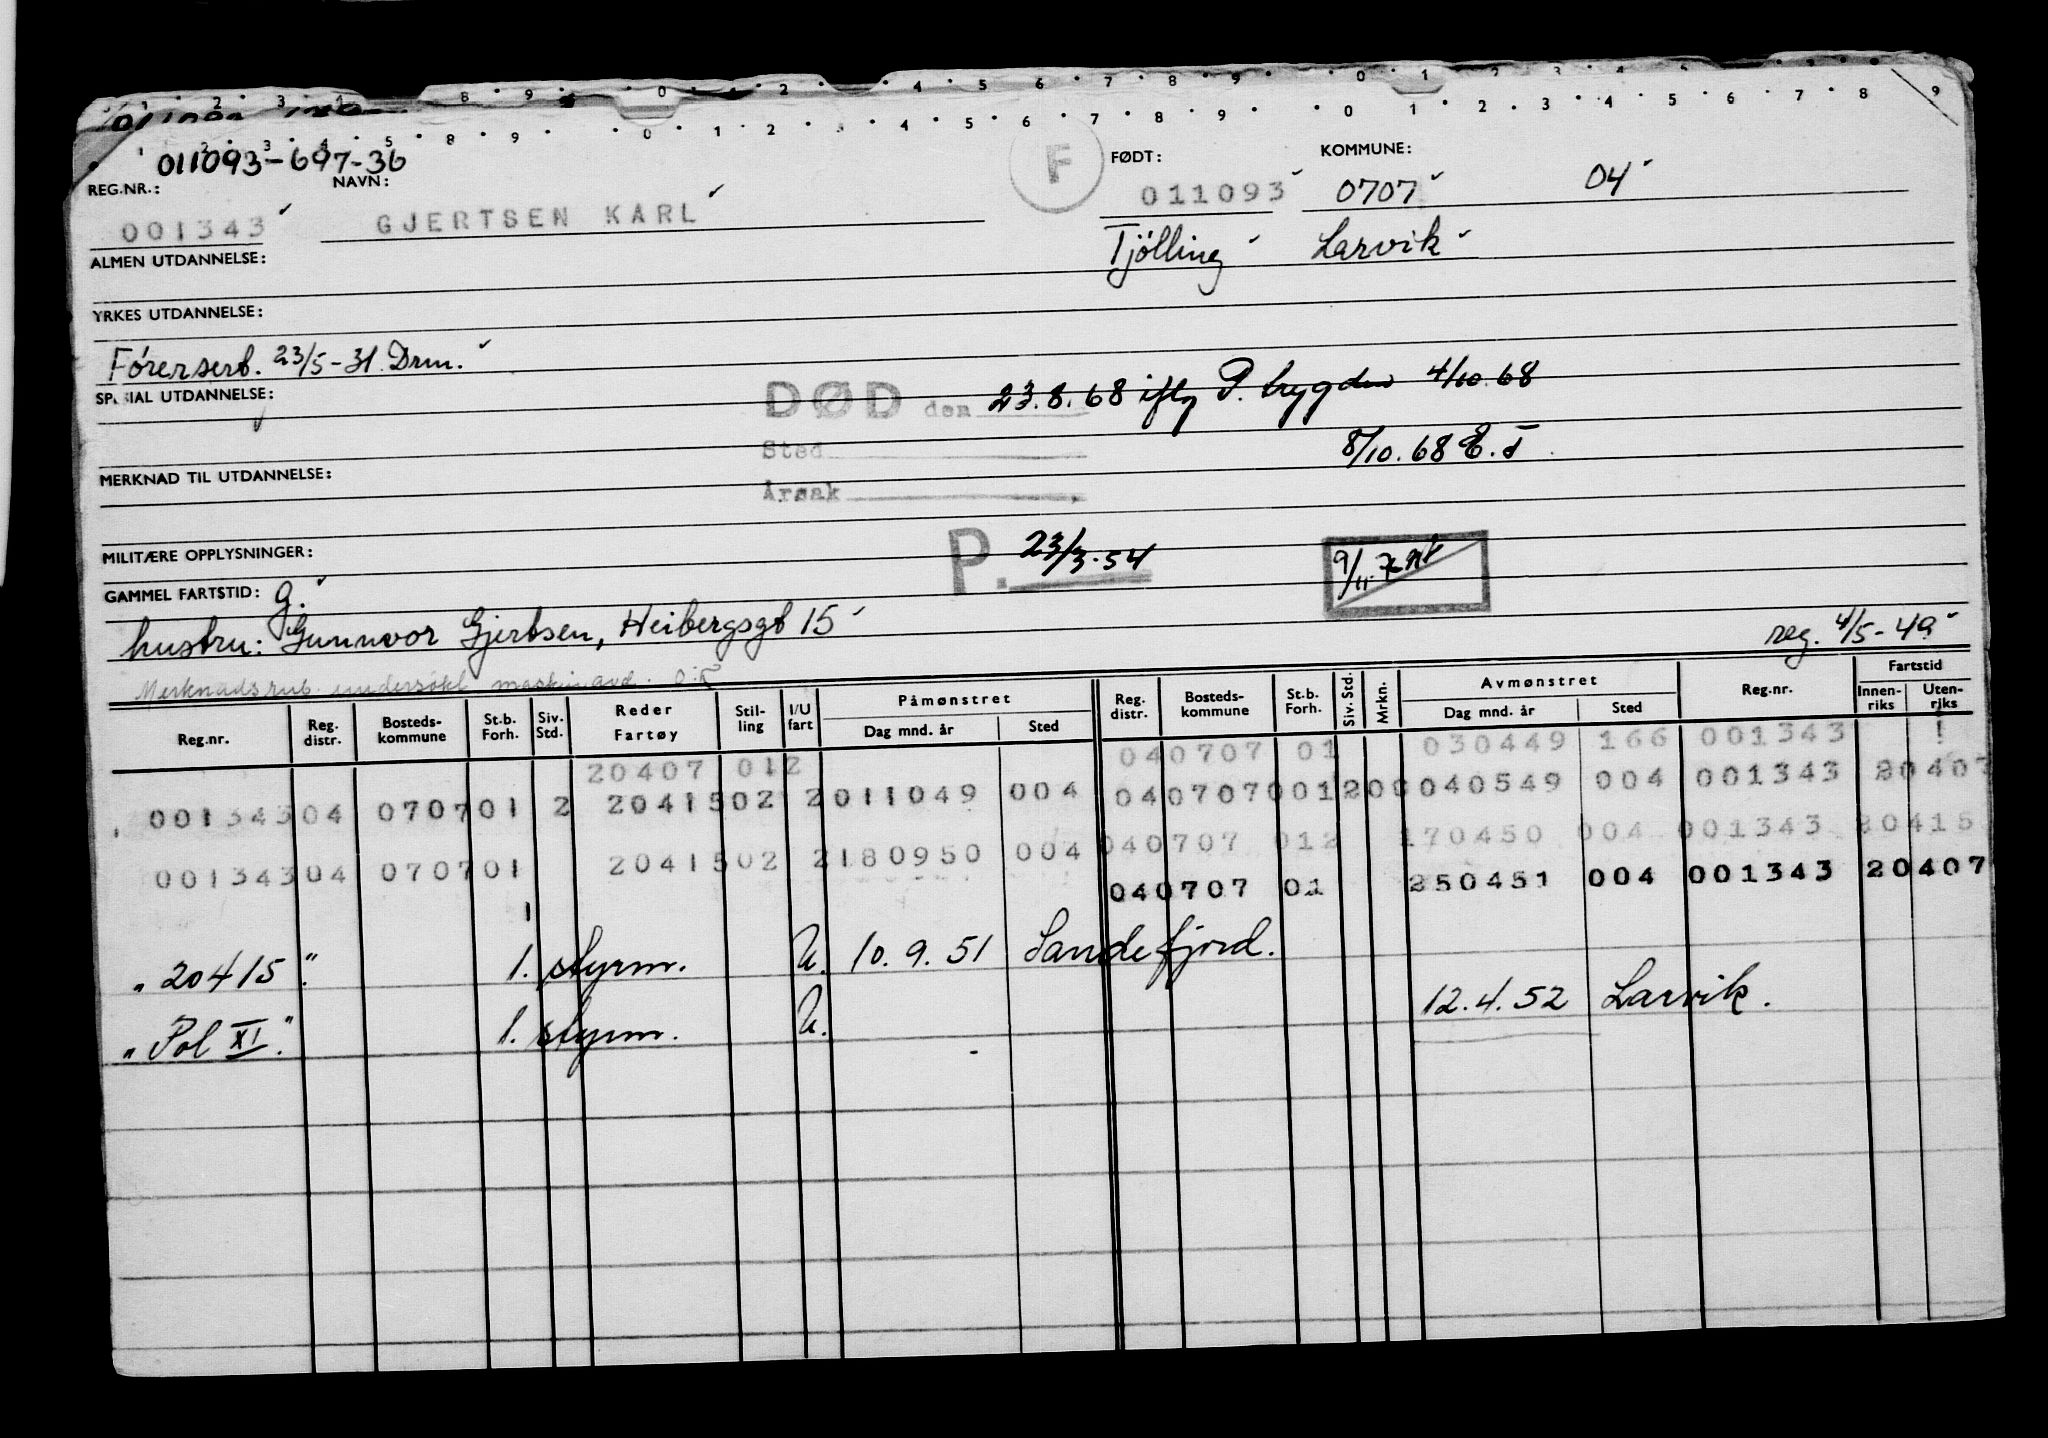 011093-697-36
REG.NR.: NAVN: F FØDT: KOMMUNE:
001343 GJERTSEN KARL 011093 0707 04
Tjölling Larvik
ALMEN UTDANNELSE:
YRKES UTDANNELSE:
Förersert. 23/5-31. Drm.
SPESIAL UTDANNELSE:
DØD den 23.8.68 iflg P. trygden 4/10.68
Sted 8/10.68 E.T
MERKNAD TIL UTDANNELSE:
Årsak
MILITÆRE OPPLYSNINGER:
P. 23/3.54
GAMMEL FARTSTID: g.
hustru: Gunnvor Gjertsen, Heibergsgt 15
reg. 4/5-49
Merknadsrub. undersøkt maskinavd.
Reg.nr. Reg. distr. Bosteds-kommune St.b. Forh. Siv. Std. Reder Fartøy Stil-ling I/U fart Påmønstret Dag mnd. år Sted Reg. distr. Bosteds-kommune St.b. Forh. Siv. Std. Mrkn. Avmønstret Dag mnd. år Sted Reg.nr. Fartstid Innen-riks Uten-riks
20407 012 040707 01 030449 166 001343
001343 04 0707 01 2 20415 02 2 011049 004 040707001200 040549 004 001343 20407
040707 012 170450 004 001343 20415
001343 04 0707 01 20415 02 2 180950 004 040707 01 250451 004 001343 20407
1
"20415" 1. styrm. U. 10.9.51 Sandefjord.
"Pol XI" 1. styrm. U. 12.4.52 Larvik.